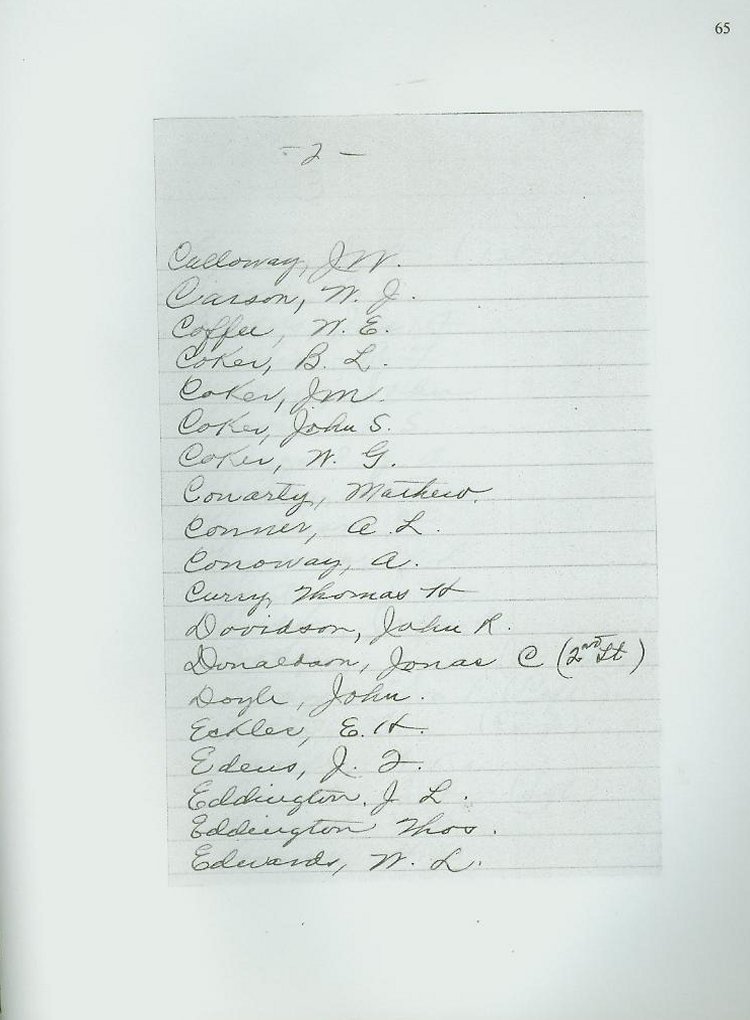 65
- 2 -
Calloway, J W.
Carson, W. J.
Coffee, W. E.
Coker, B. L.
Coker, J M.
Coker, John S.
Coker, W. G.
Conarty, Mathew.
Conner, A. L.
Conoway, A.
Curry, Thomas H
Davidson, John R.
Donaldson, Jonas C (2nd Lt)
Doyle, John.
Eckler, E. H.
Edens, J. F.
Eddington, J L.
Eddington Thos.
Edwards, W. L.